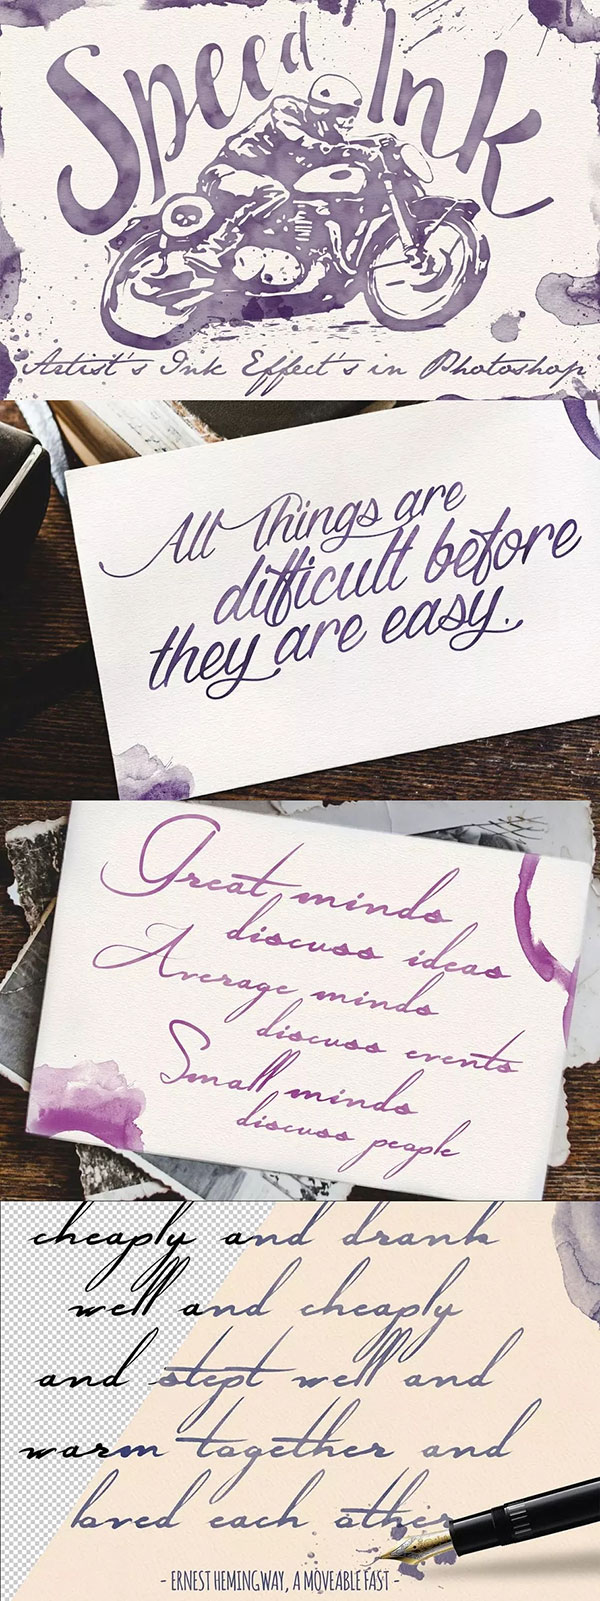 Speed Ink
Artist's Ink Effect's in Photoshop
All Things are
difficult before
they are easy.
Great minds
discuss ideas
Average minds
discuss events
Small minds
discuss people
cheaply and drank
well and cheaply
and slept well and
warm together and
loved each other
- ERNEST HEMINGWAY, A MOVEABLE FAST -